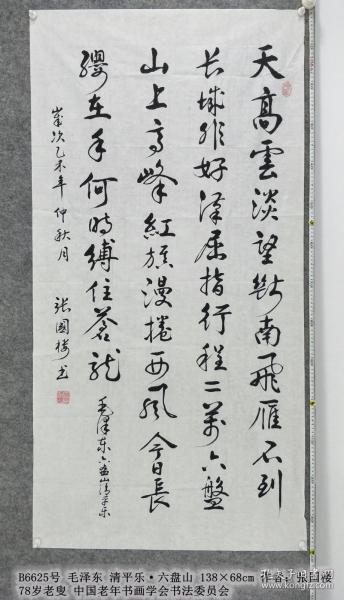 天高雲淡望斷南飛雁不到
长城非好漢屈指行程二萬六盤
山上高峰紅旗漫捲西風今日長
纓在手何時縛住蒼龍 毛泽东六盘山清平乐
嵗次乙未年仲秋月 张國楼书
B6625号 毛泽东 清平乐·六盘山 138×68cm 作者：张国楼
78岁老叟 中国老年书画学会书法委员会